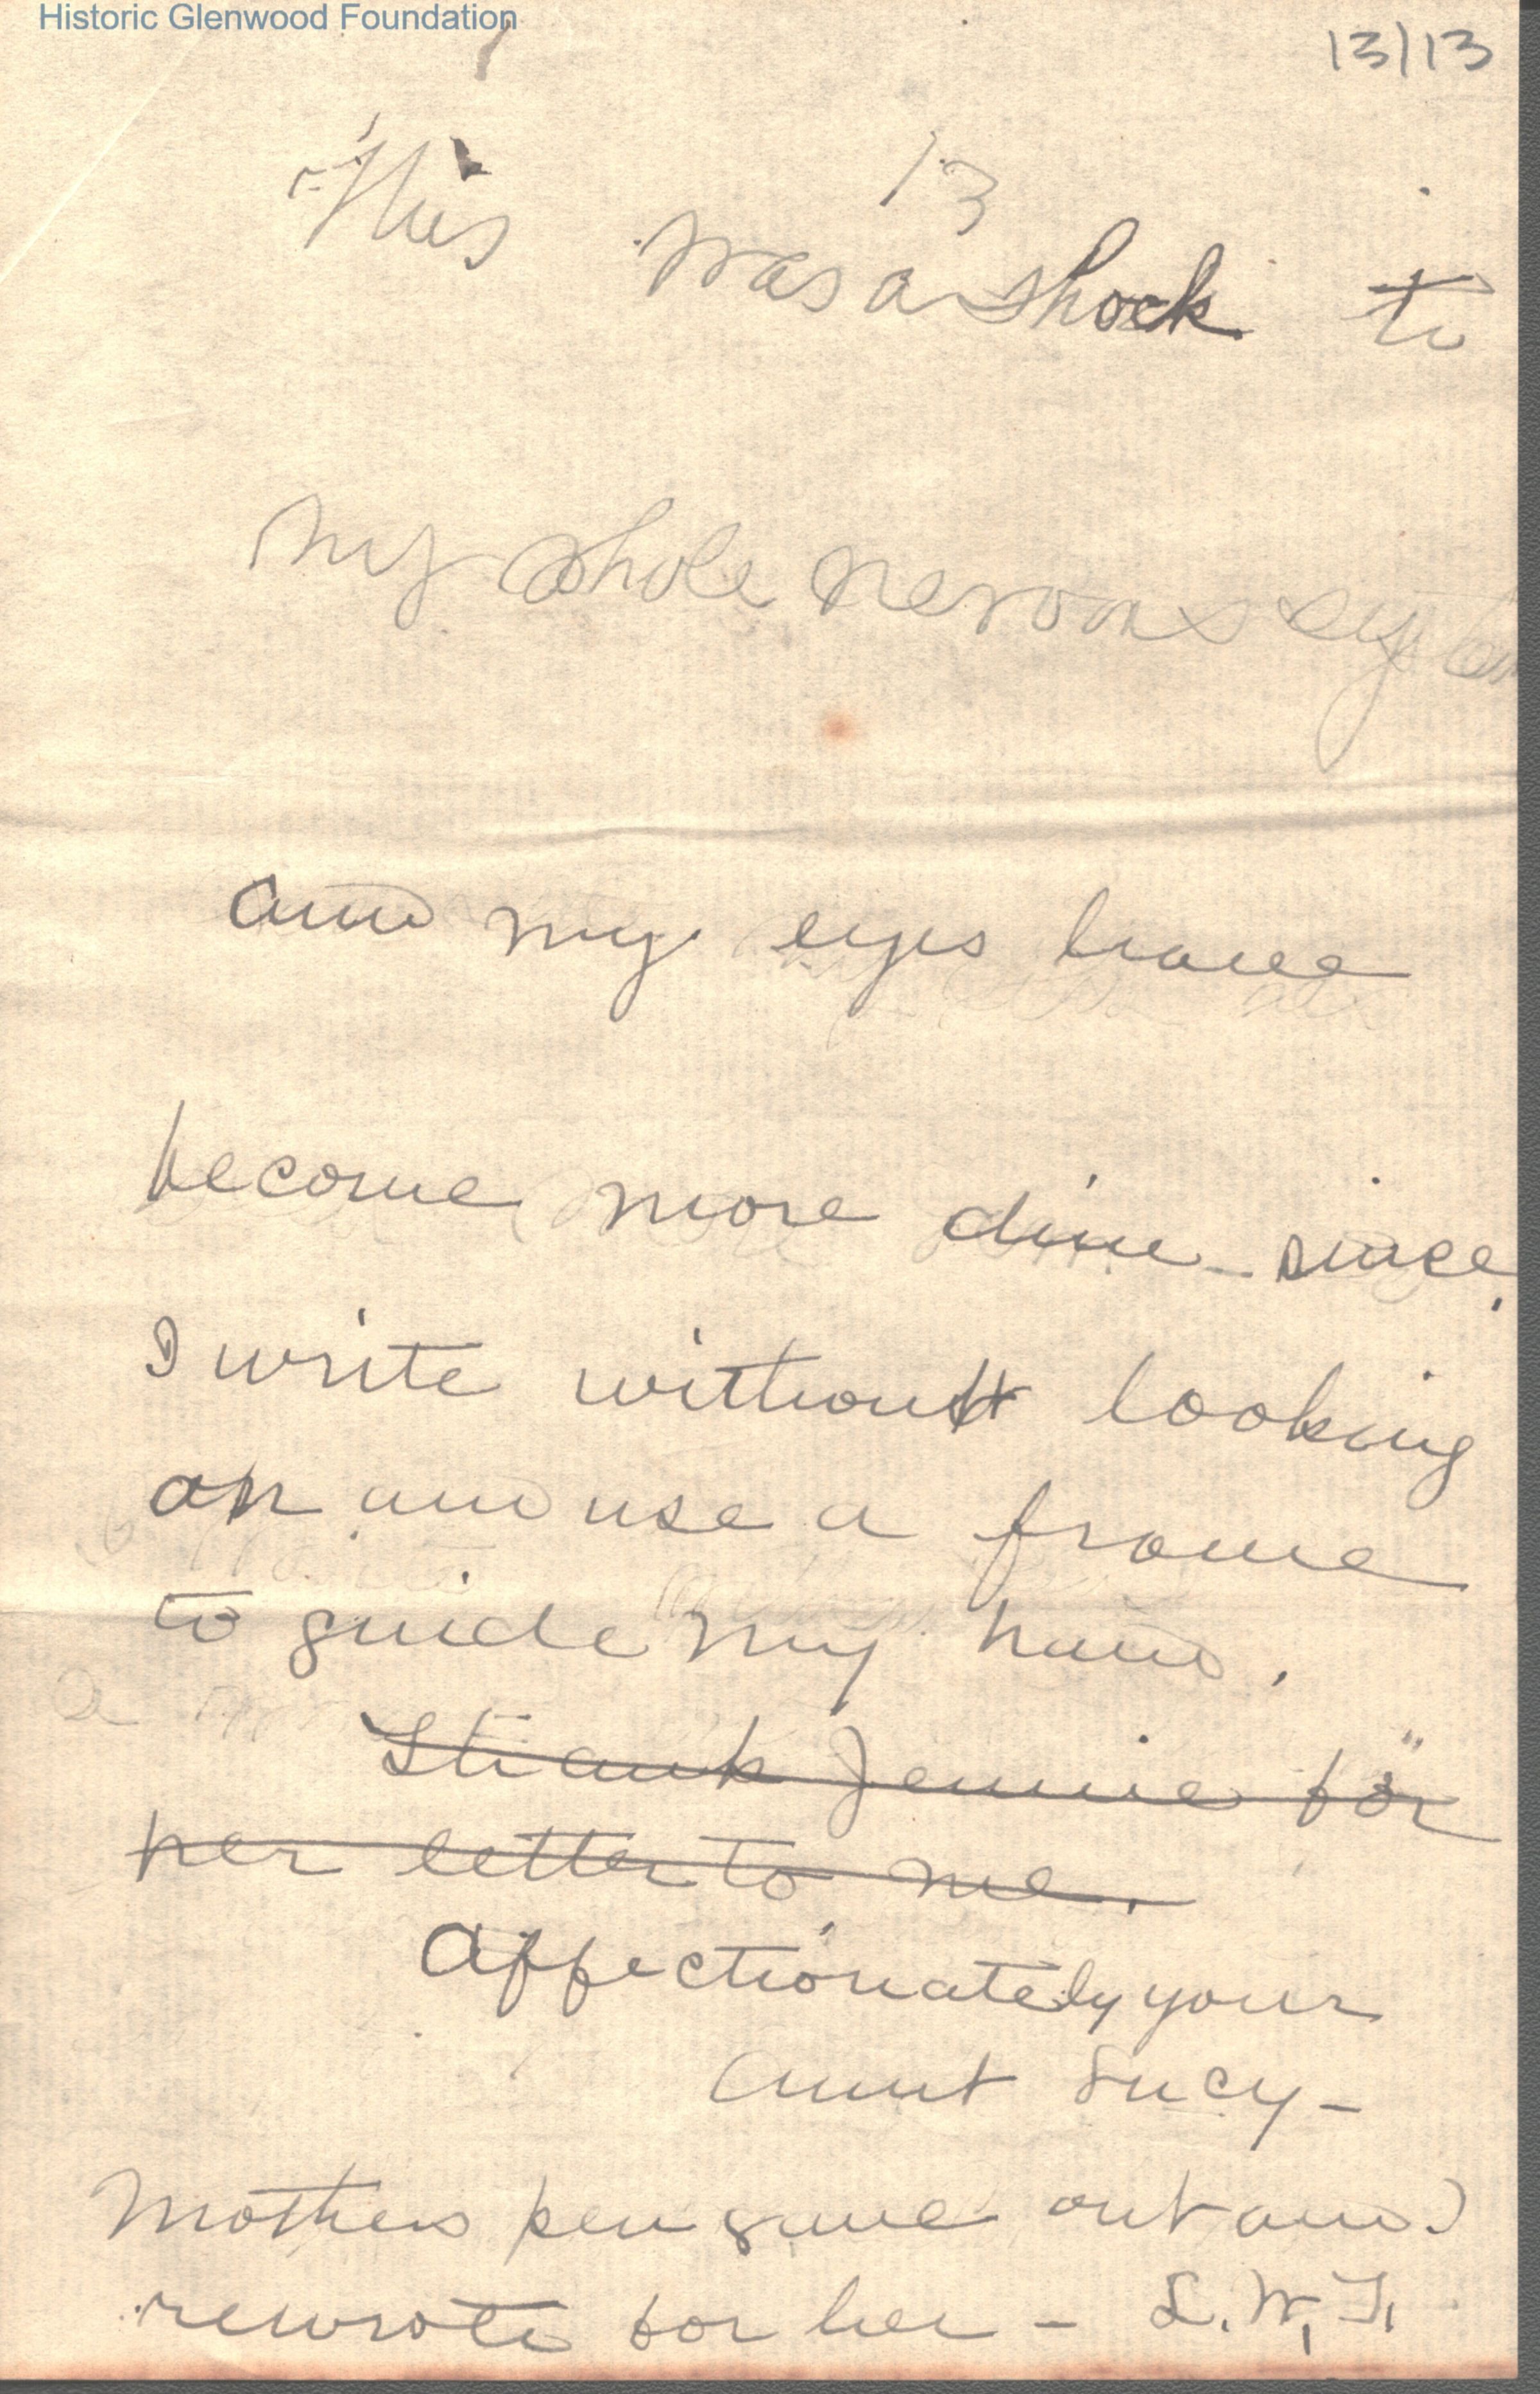 Historic Glenwood Foundation
13/13
13
This was a shock to
my whole nervous system
and my eyes have
become more dim since.
I write without looking
on and use a frame
to guide my hand.
I thank Jennie for
her letter to me.
Affectionately your
Aunt Lucy -
Mothers pen gave out and I
rewrote for her - L.W.T.